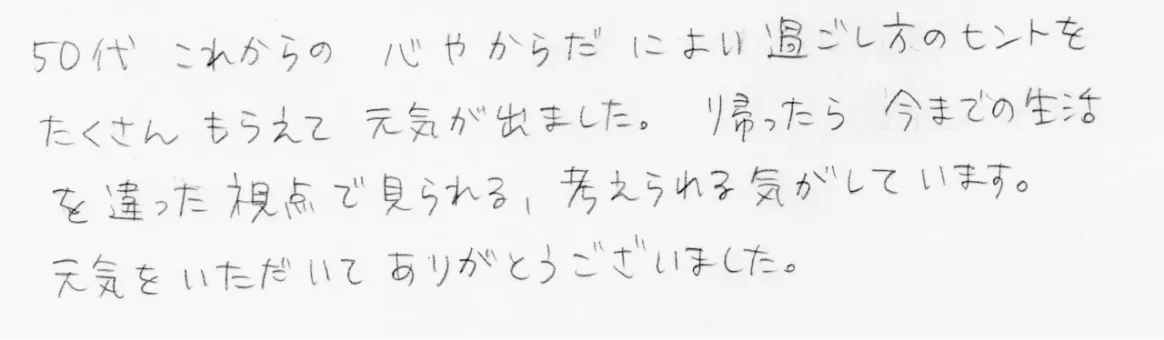 50代 これからの 心やからだ によい過ごし方のヒントを
たくさん もらえて 元気が出ました。 帰ったら 今までの生活
を違った視点で見られる, 考えられる気がしています。
元気をいただいて ありがとうございました。